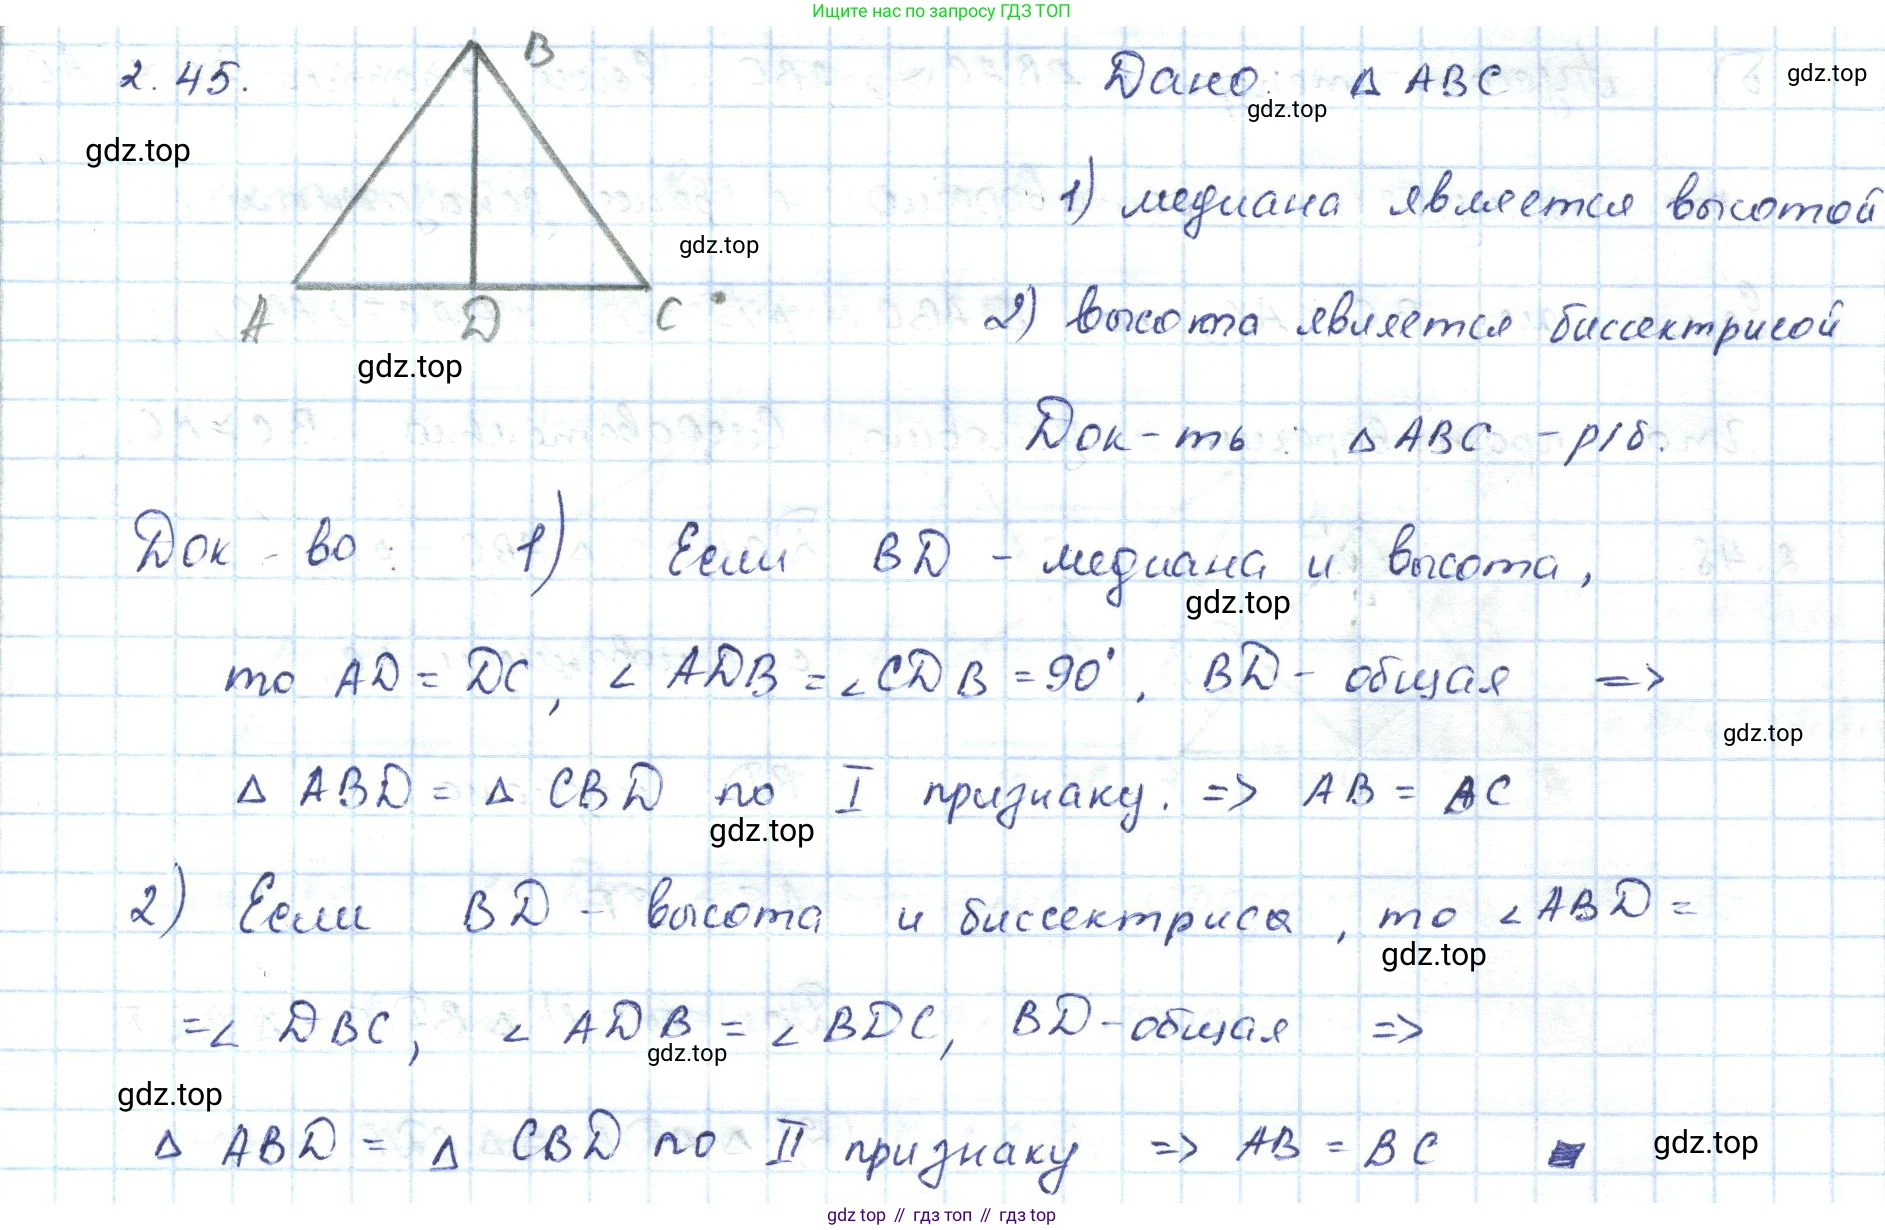 Ищите нас по запросу ГДЗ ТОП
2.45.
B
Дано: Δ ABC
gdz.top
gdz.top
gdz.top
1) медиана является высотой
gdz.top
A D C
2) высота является биссектрисой
gdz.top
Док-ть: Δ ABC - р/б.
Док-во: 1) Если BD - медиана и высота,
gdz.top
то AD = DC, ∠ ADB = ∠ CDB = 90°, BD - общая =>
gdz.top
Δ ABD = Δ CBD по I признаку. => AB = AC
gdz.top
2) Если BD - высота и биссектриса, то ∠ ABD =
gdz.top
= ∠ DBC, ∠ ADB = ∠ BDC, BD - общая =>
gdz.top
gdz.top
Δ ABD = Δ CBD по II признаку => AB = BC
gdz.top
gdz top // гдз топ // гдз top